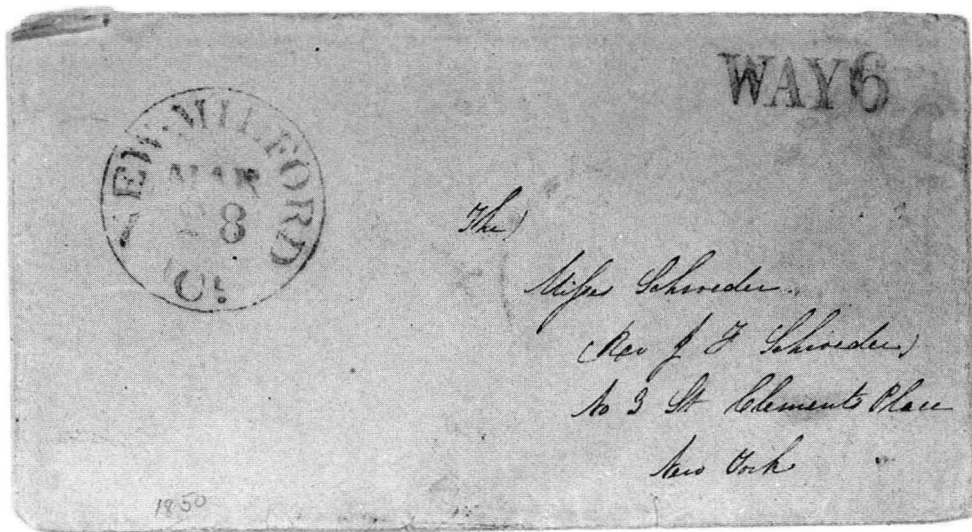 WAY 6
NEW-MILFORD
MAR
8
The
Misses Schroeder
(Rev J F Schroeder)
No 3 St Clements Place
New York
1850